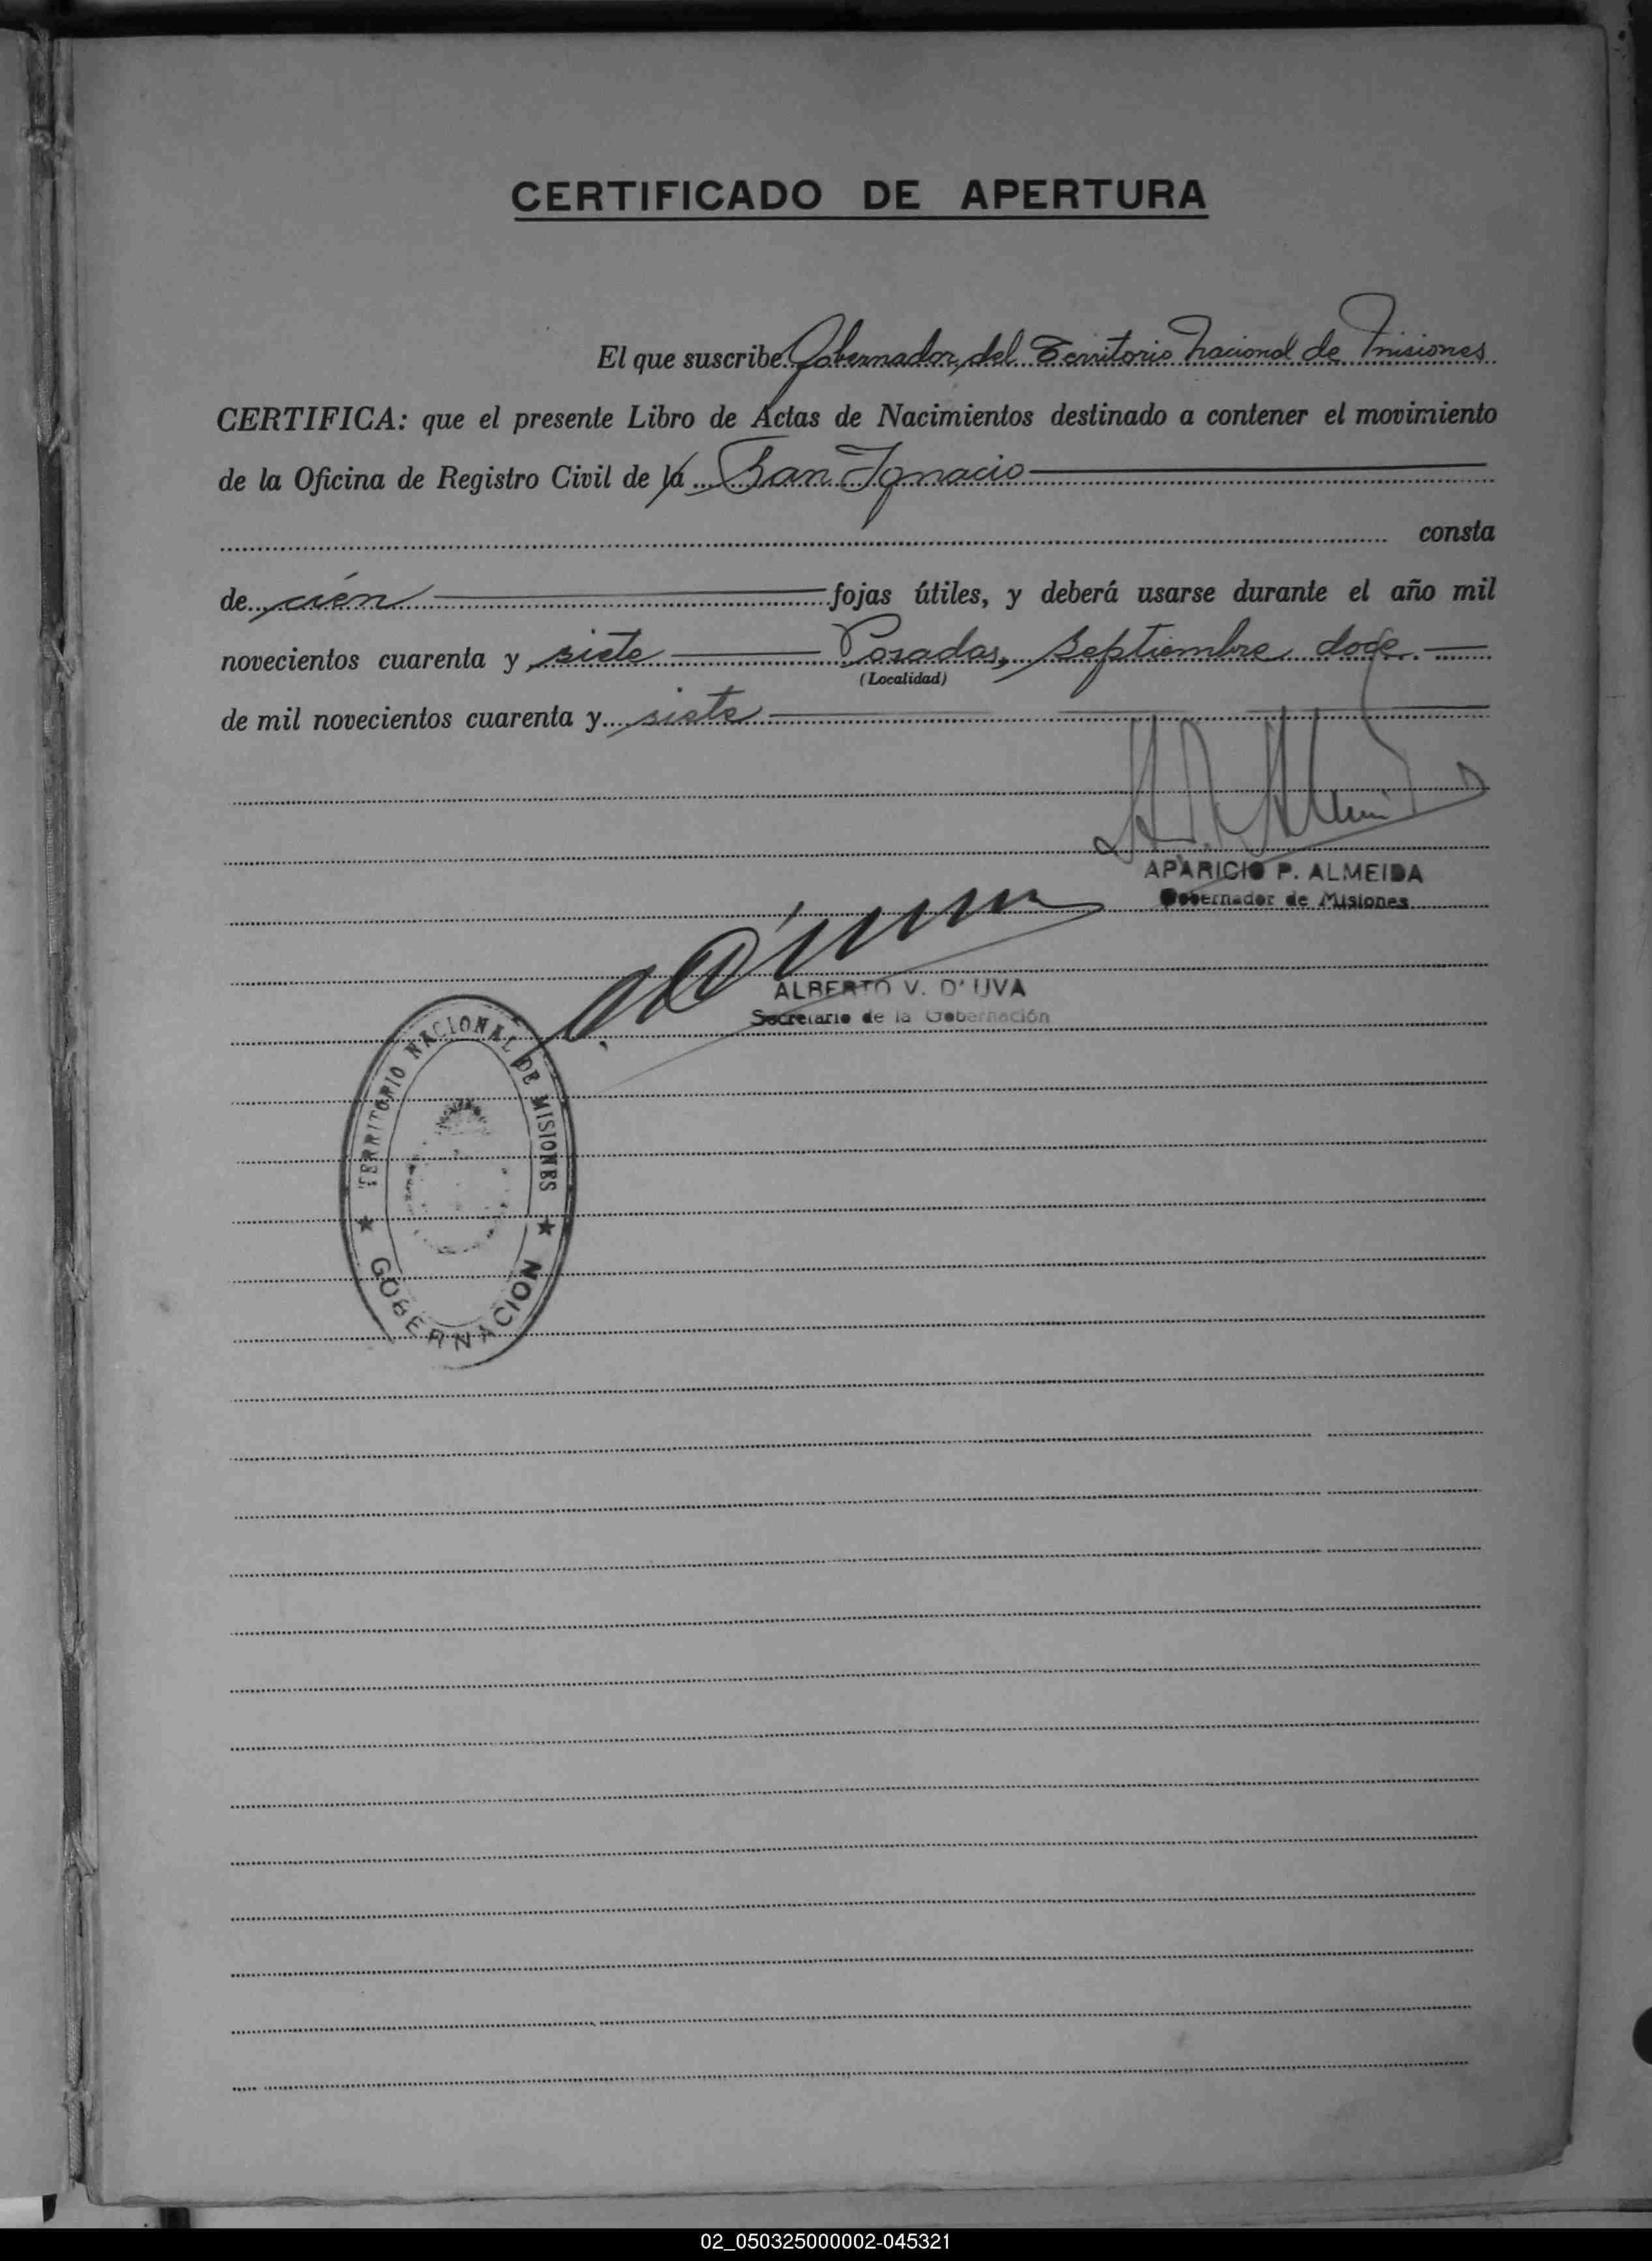 CERTIFICADO DE APERTURA
El que suscribe Gobernador del Territorio Nacional de Misiones
CERTIFICA: que el presente Libro de Actas de Nacimientos destinado a contener el movimiento
de la Oficina de Registro Civil de la San Ignacio
consta
de cién fojas útiles, y deberá usarse durante el año mil
novecientos cuarenta y siete Posadas, Septiembre doce.
(Localidad)
de mil novecientos cuarenta y siete
APARICIO P. ALMEIDA
Gobernador de Misiones
ALBERTO V. D'UVA
Secretario de la Gobernación
TERRITORIO NACIONAL DE MISIONES
GOBERNACION
02_050325000002-045321